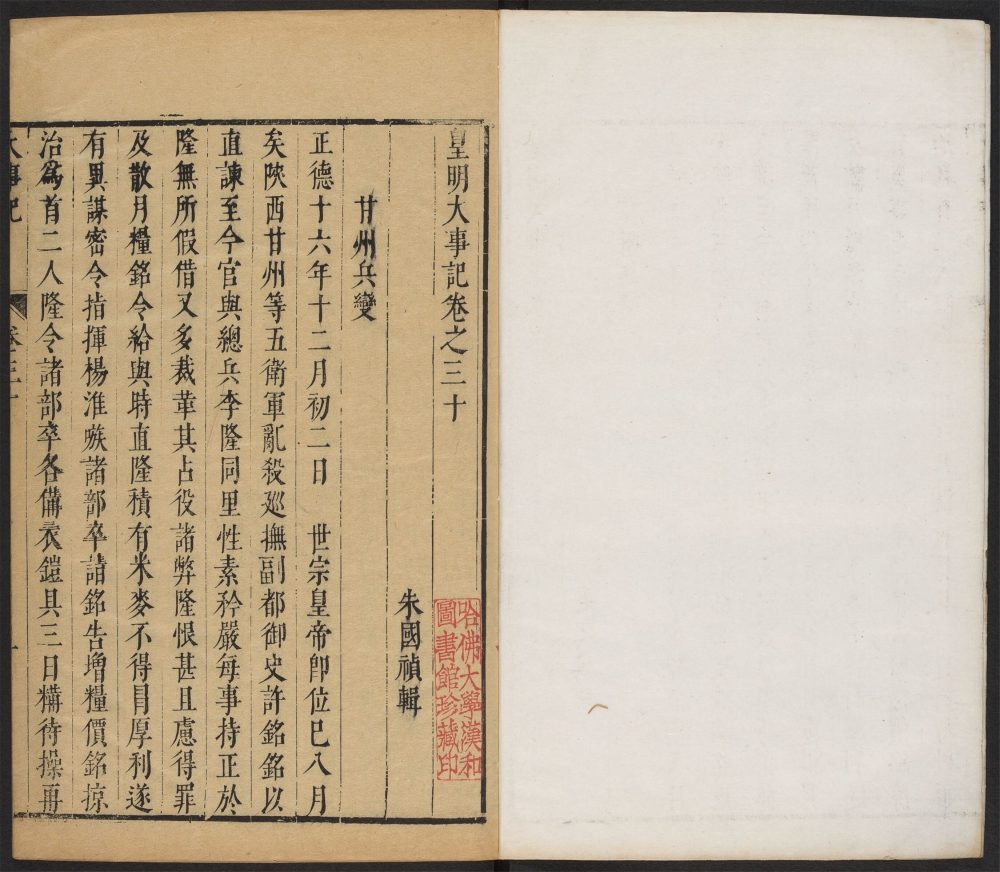 皇明大事記卷之三十
朱國禎輯
甘州兵變
正德十六年十二月初二日　世宗皇帝卽位巳八月
矣陝西甘州等五衛軍亂殺廵撫副都御史許銘銘以
直諫至今官與總兵李隆同里性素矜嚴每事持正於
隆無所假借又多裁革其占役諸弊隆恨甚且慮得罪
及散月糧銘令給與時直隆積有米麥不得厚利遂
有異謀密令指揮楊淮嗾諸部卒請銘告增糧價銘掠
治爲首二人隆令諸部卒各備衷鎧具三日糒待操再
大事記
卷三十
一
哈佛大學漢和
圖書館珍藏印